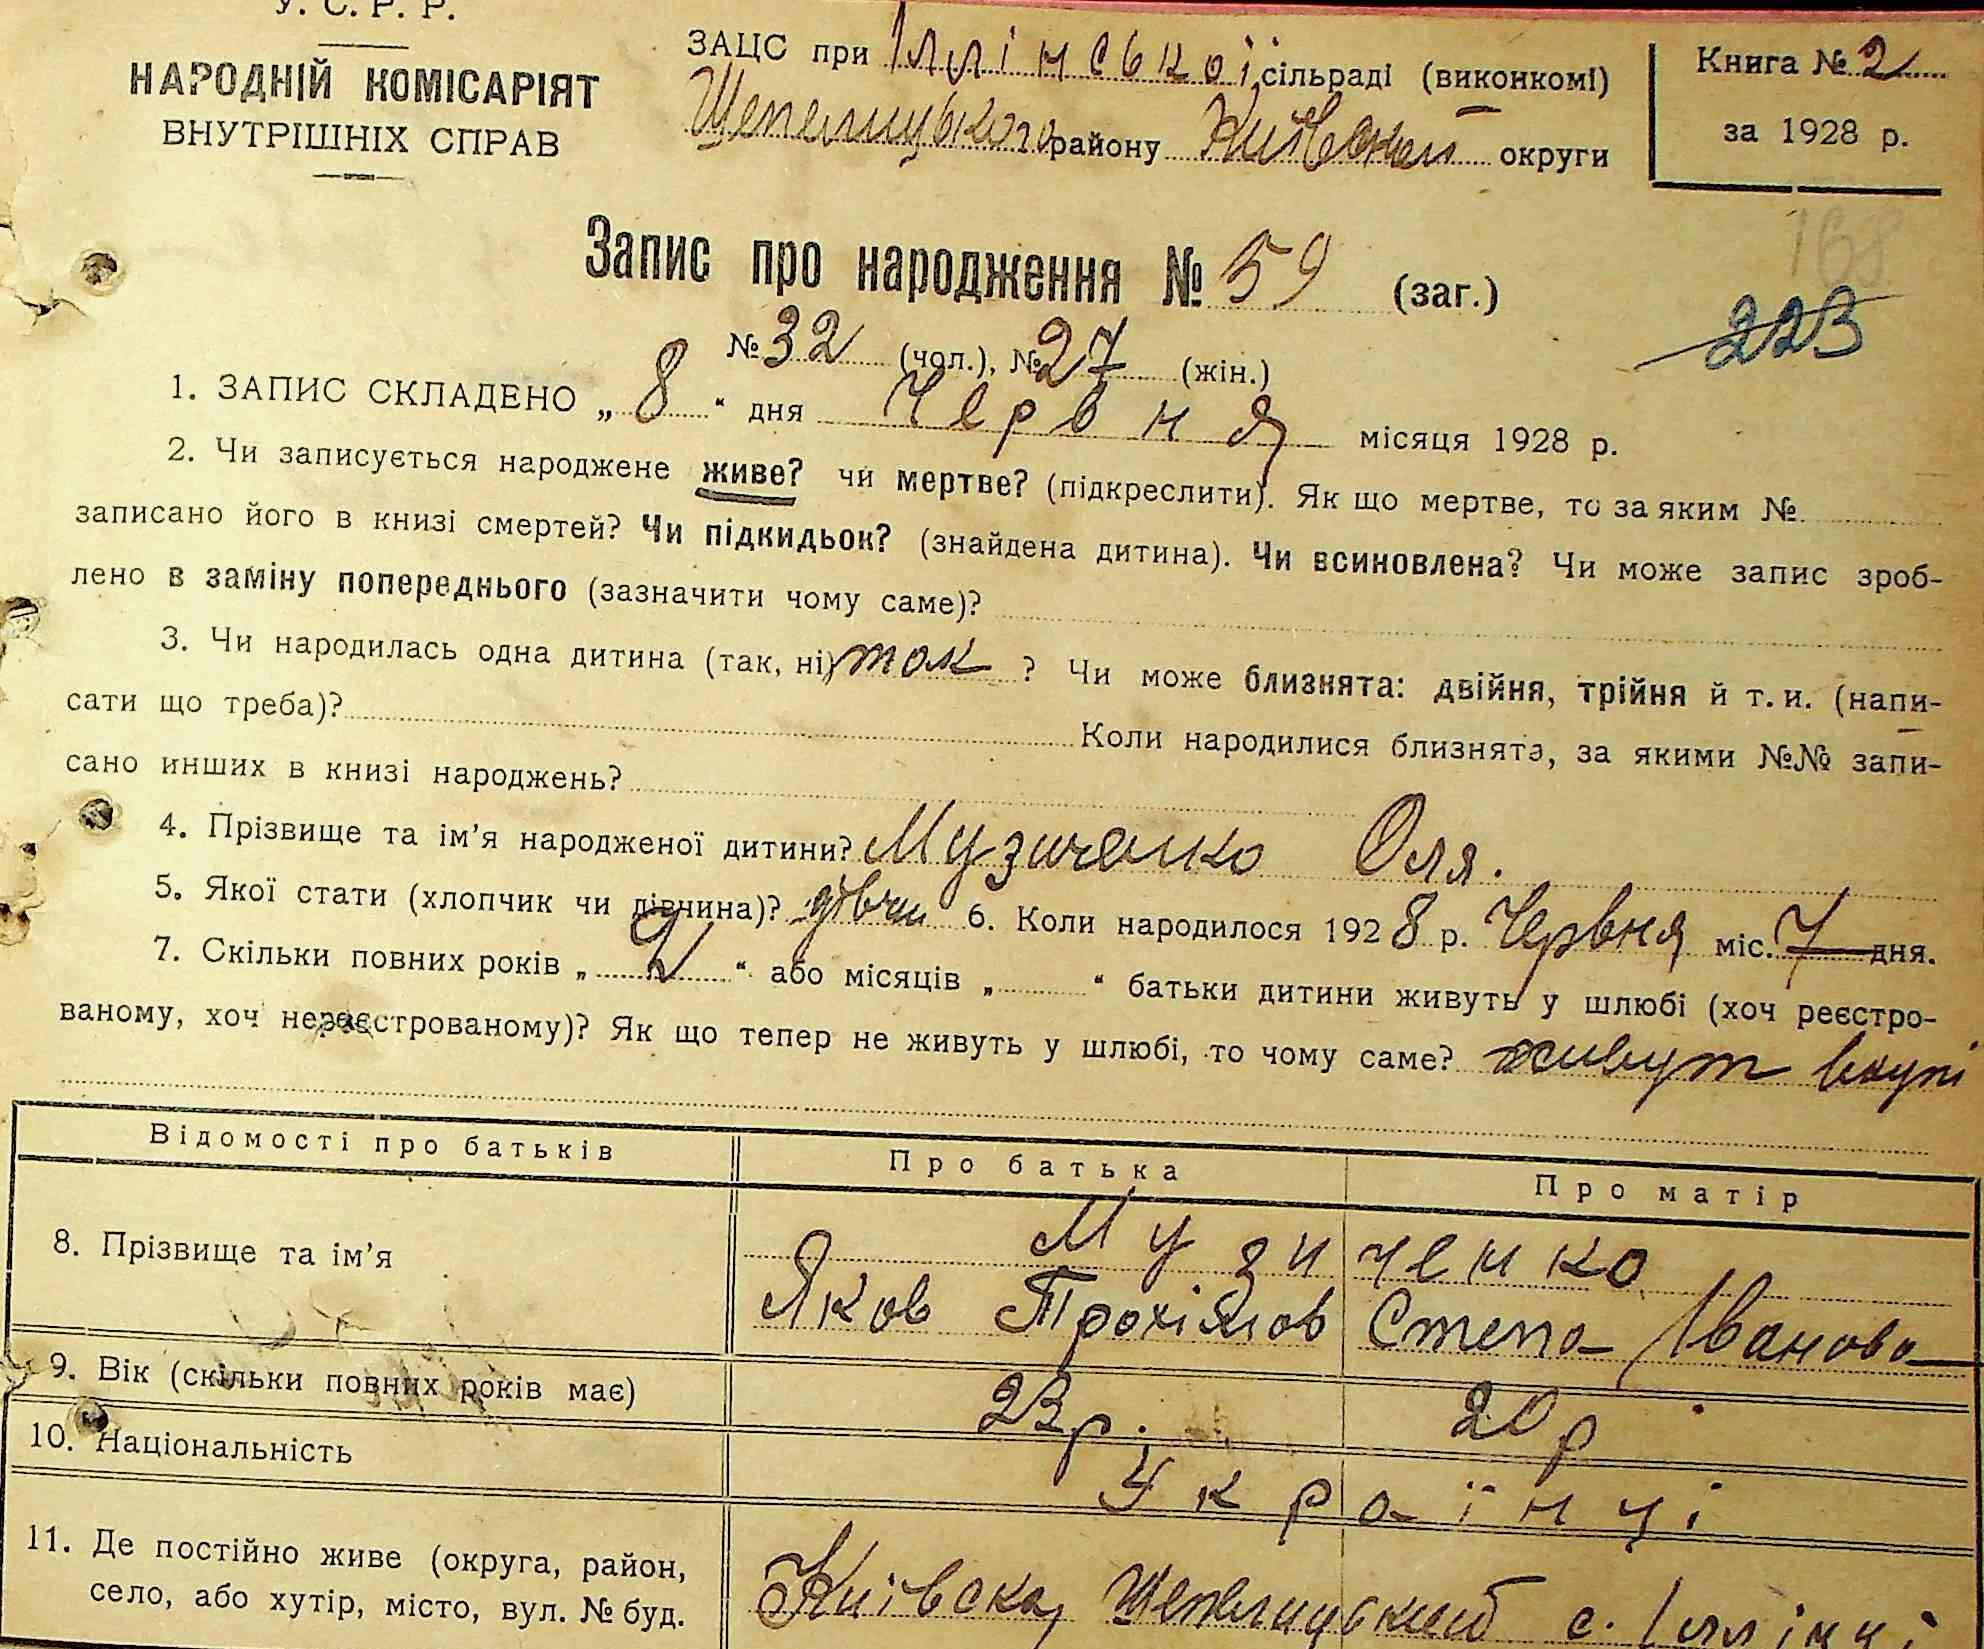 У. С. Р. Р.
НАРОДНІЙ КОМІСАРІЯТ
ВНУТРІШНІХ СПРАВ
ЗАЦС при Іллінської сільраді (виконкомі)
Шепелицького району Київской округи
Книга № 2
за 1928 р.
168
223
Запис про народження № 59 (заг.)
№ 32 (чол.), № 27 (жін.)
1. ЗАПИС СКЛАДЕНО „ 8 “ дня Червня місяця 1928 р.
2. Чи записується народжене живе? чи мертве? (підкреслити). Як що мертве, то за яким №
записано його в книзі смертей? Чи підкидьок? (знайдена дитина). Чи всиновлена? Чи може запис зроб-
лено в заміну попереднього (зазначити чому саме)?
3. Чи народилась одна дитина (так, ні) так ? Чи може близнята: двійня, трійня й т. и. (напи-
сати що треба)? Коли народилися близнята, за якими №№ запи-
сано инших в книзі народжень?
4. Прізвище та ім’я народженої дитини? Музиченко Оля.
5. Якої стати (хлопчик чи дівчина)? дівчи 6. Коли народилося 1928 р. Червня міс. 7 дня.
7. Скільки повних років „ 2 “ або місяців „ “ батьки дитини живуть у шлюбі (хоч реєстро-
ваному, хоч нереєстрованому)? Як що тепер не живуть у шлюбі, то чому саме? живут вкупі
Відомості про батьків Про батька Про матір
8. Прізвище та ім’я Музиченко
Яков Трохімов Степа Іванова
9. Вік (скільки повних років має) 23 р. 20 р
10. Національність Українці
11. Де постійно живе (округа, район,
село, або хутір, місто, вул. № буд. Київска, Шепелицький с. Іллінці